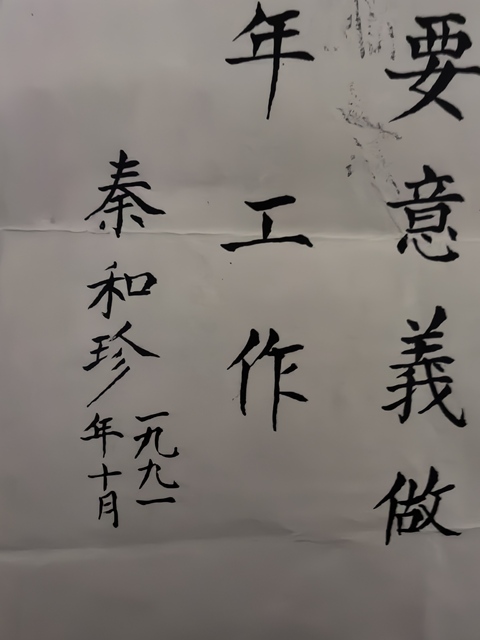 要意義做
年工作
秦和珍
一九九一
年十月